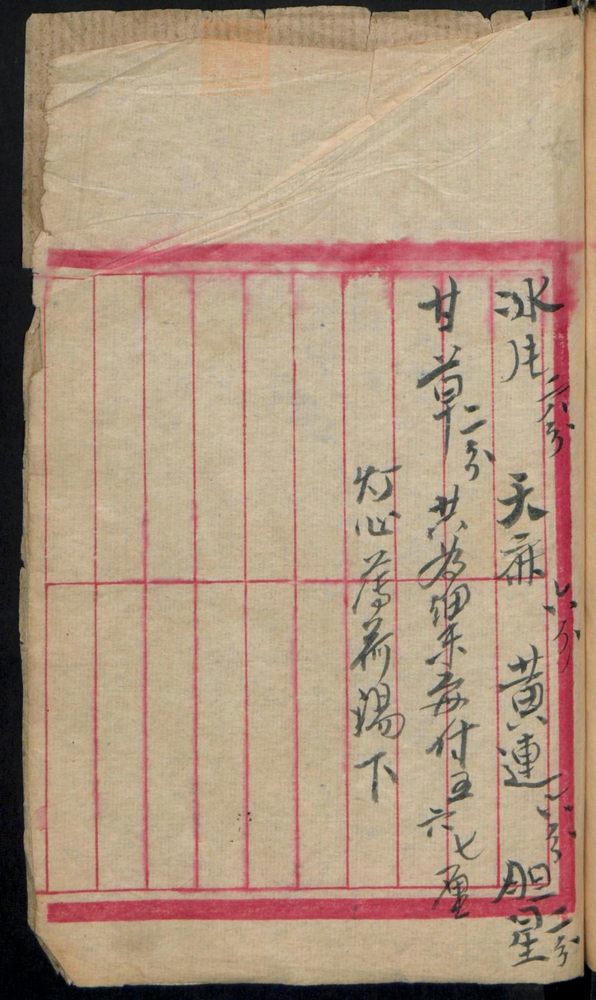 冰片二分 天麻六分 黃連六分 胆星二分
甘草二分 共為細末每付五六七厘
灯心薄荷湯下